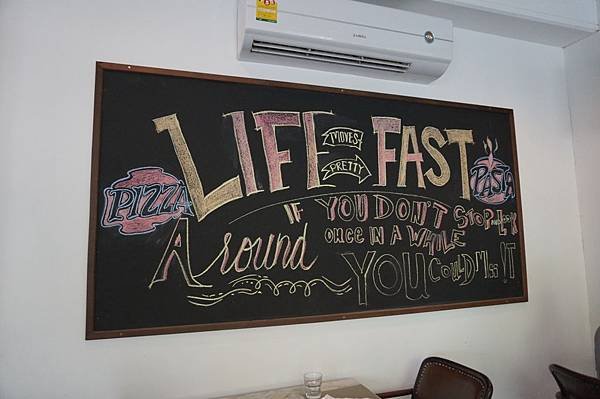 LIFE MOVES PRETTY FAST
PIZZA
PASTA
IF YOU DON'T STOP and LOOK
Around once IN A WHILE
YOU COULD MISS IT